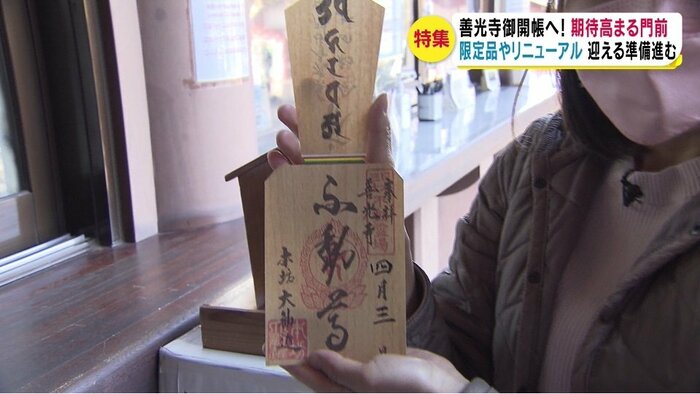 特集
善光寺御開帳へ！ 期待高まる門前
限定品やリニューアル 迎える準備進む
奉拝
善光寺
四月三日
不動尊
本坊 大勧進